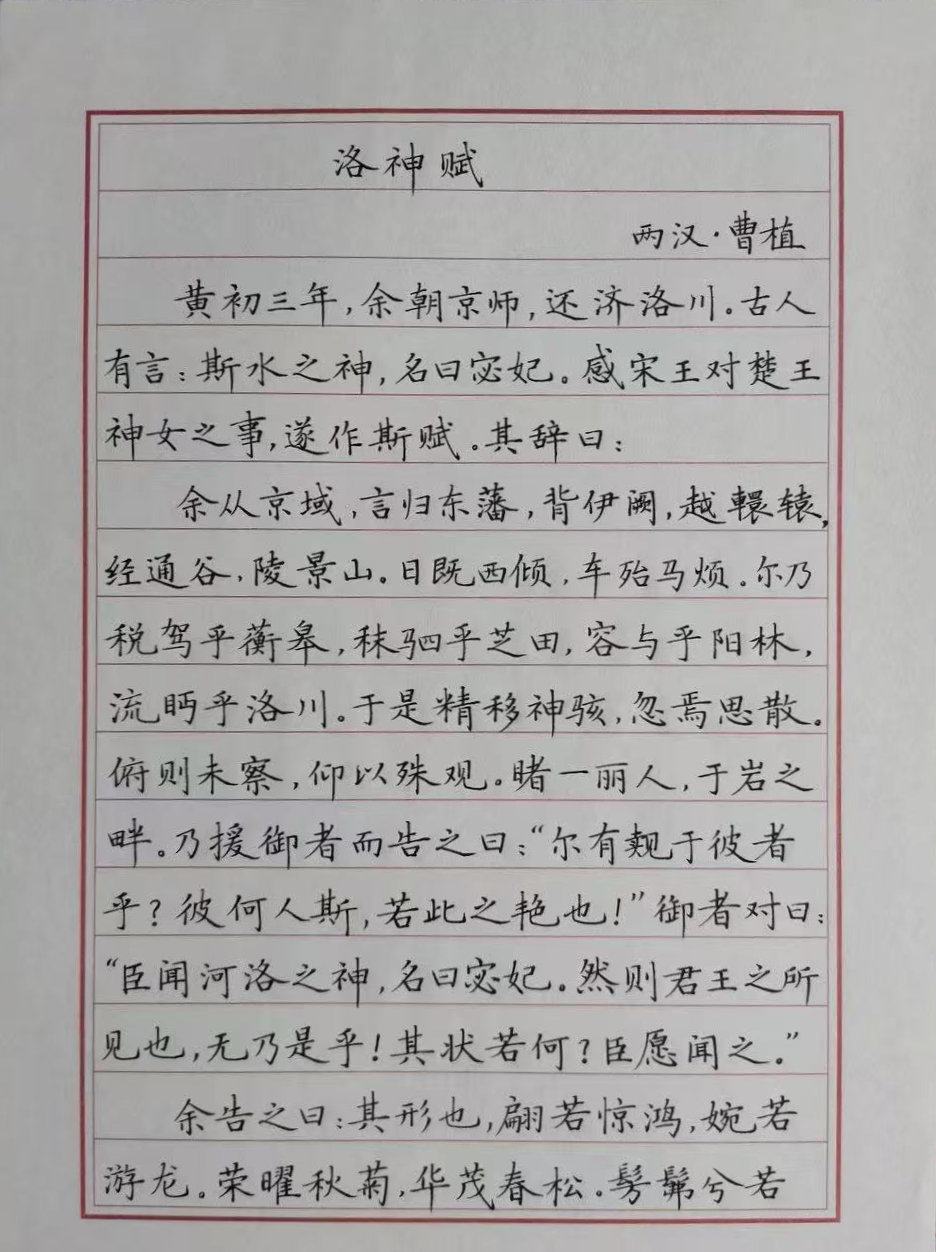 洛神赋
两汉·曹植
黄初三年,余朝京师,还济洛川。古人
有言:斯水之神,名曰宓妃。感宋玉对楚王
神女之事,遂作斯赋。其辞曰:
余从京域,言归东藩,背伊阙,越轘辕,
经通谷,陵景山。日既西倾,车殆马烦。尔乃
税驾乎蘅皋,秣驷乎芝田,容与乎阳林,
流眄乎洛川。于是精移神骇,忽焉思散。
俯则未察,仰以殊观。睹一丽人,于岩之
畔。乃援御者而告之曰:“尔有觌于彼者
乎?彼何人斯,若此之艳也!”御者对曰:
“臣闻河洛之神,名曰宓妃。然则君王之所
见也,无乃是乎!其状若何?臣愿闻之。”
余告之曰:其形也,翩若惊鸿,婉若
游龙。荣曜秋菊,华茂春松。髣髴兮若